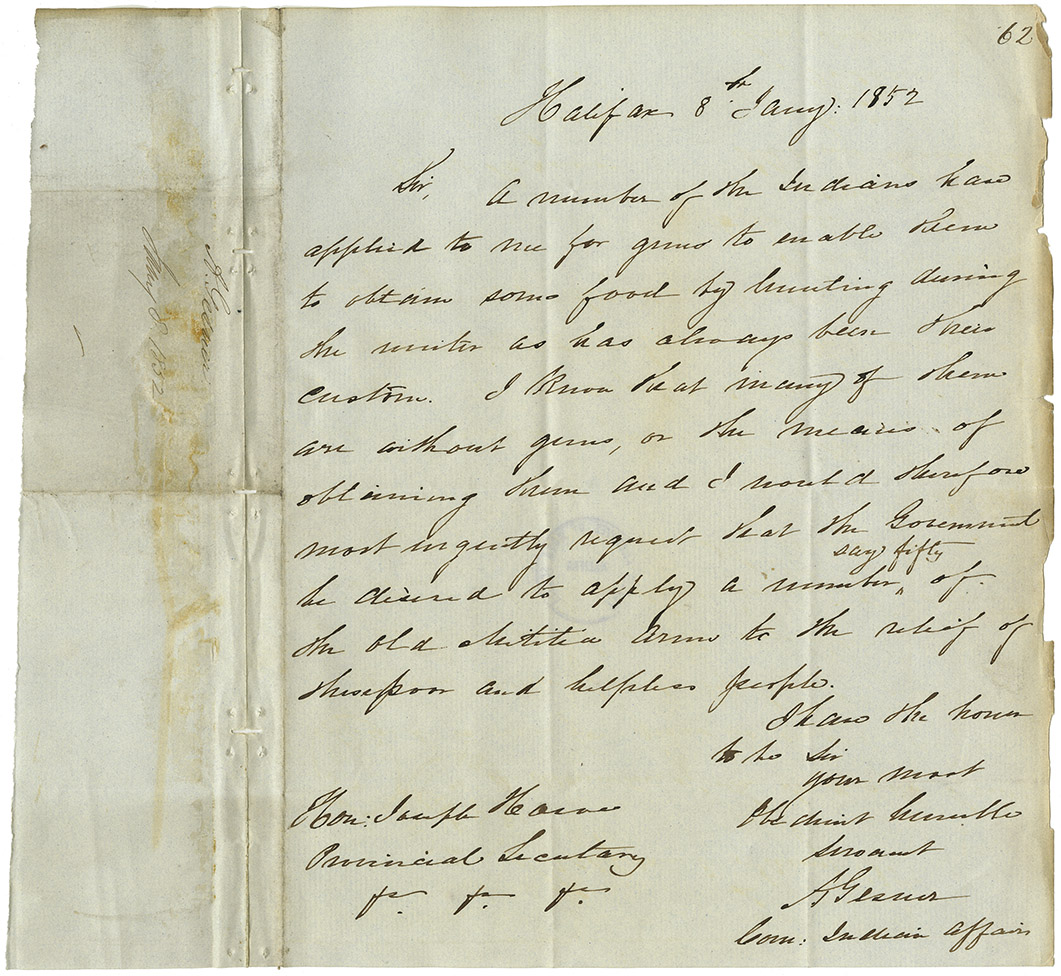 62
Halifax 8th Jany: 1852
Sir, A number of the Indians have
applied to me for guns to enable them
to obtain some food by hunting during
the winter as has always been their
custom. I know that many of them
are without guns, or the means of
obtaining them and I would therefore
most urgently request that the Government
say fifty
be desired to apply a number " of
the old Militia Arms to the relief of
these poor and helpless people.
I have the honor
to be Sir
your most
Obedient humble
servant
A Gesner
Com: Indian Affairs
Hon: Joseph Howe
Provincial Secretary
&c. &c. &c.
A. Gesner
Jany 8, 1852